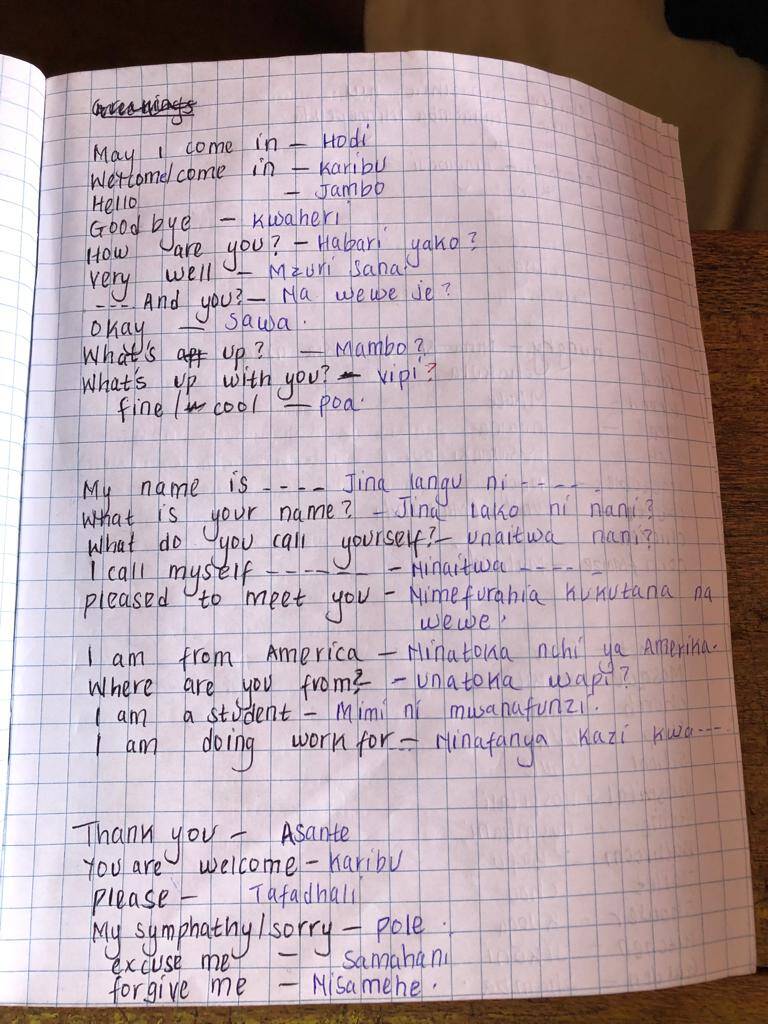 Greetings
May I come in – Hodi
Welcome/come in – Karibu
Hello – Jambo
Good bye – Kwaheri
How are you? – Habari yako?
very well – Mzuri sana.
--- And you? – Na wewe je?
Okay – Sawa.
What's up? – Mambo?
What's up with you? – vipi?
fine / cool – poa.
My name is ---- Jina langu ni -----
What is your name? – Jina lako ni nani?
What do you call yourself? – unaitwa nani?
I call myself ------- – Ninaitwa -----
pleased to meet you – Nimefurahia kukutana na
wewe.
I am from America – Ninatoka nchi ya Amerika.
Where are you from? – unatoka wapi?
I am a student – Mimi ni mwanafunzi.
I am doing work for – Ninafanya kazi kwa---
Thank you – Asante
You are welcome – Karibu
please – Tafadhali
My symphathy/sorry – pole.
excuse me – Samahani
forgive me – Nisamehe.